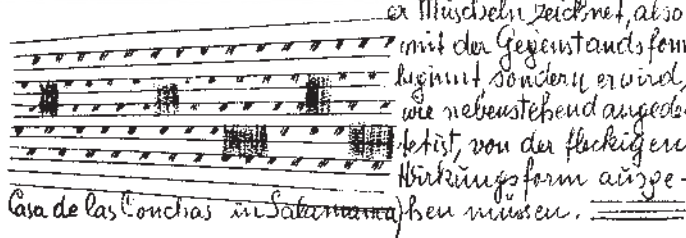 er Muscheln zeichnet, also
mit der Gegenstandsform
beginnt sondern er wird,
wie nebenstehend angedeu-
tet ist, von der fleckigen
Wirkungsform ausge-
Casa de las Conchas in Salamanca) hen müssen.